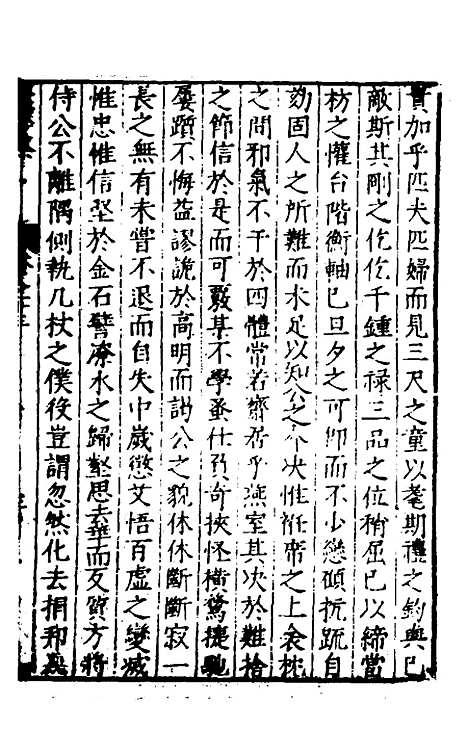 貴加乎匹夫匹婦而見三尺之童以耄期禮之鈞與已
敵斯其剛之仡仡千鍾之祿三品之位稍屈已以締當
枋之懽台階衡軸已旦夕之可卽而不少戀頎抗疏自
劾固人之所難而未足以知公之介決惟衽帝之上衾枕
之間邪氣不干於四體常若齋居乎燕室其決於難捨
之節信於是而可覈某不學蚤仕負奇挾怪橫騖捷馳
屢躓不悔益謬詭於高明而訪公之貌休休斷斷寂一
長之無有未嘗不退而自失中歲懲艾悟百虛之變滅
惟忠惟信堅於金石譬潦水之歸壑思去華而反質方將
侍公不離隅側執几杖之僕後豈謂忽然化去捐和